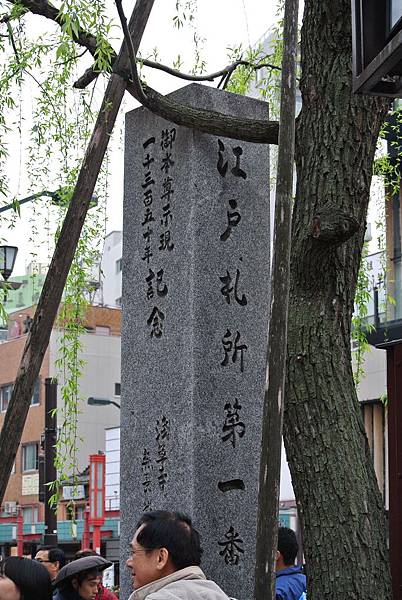 江戸札所第一番
御本尊示現
一千三百五十年
記念
浅草寺